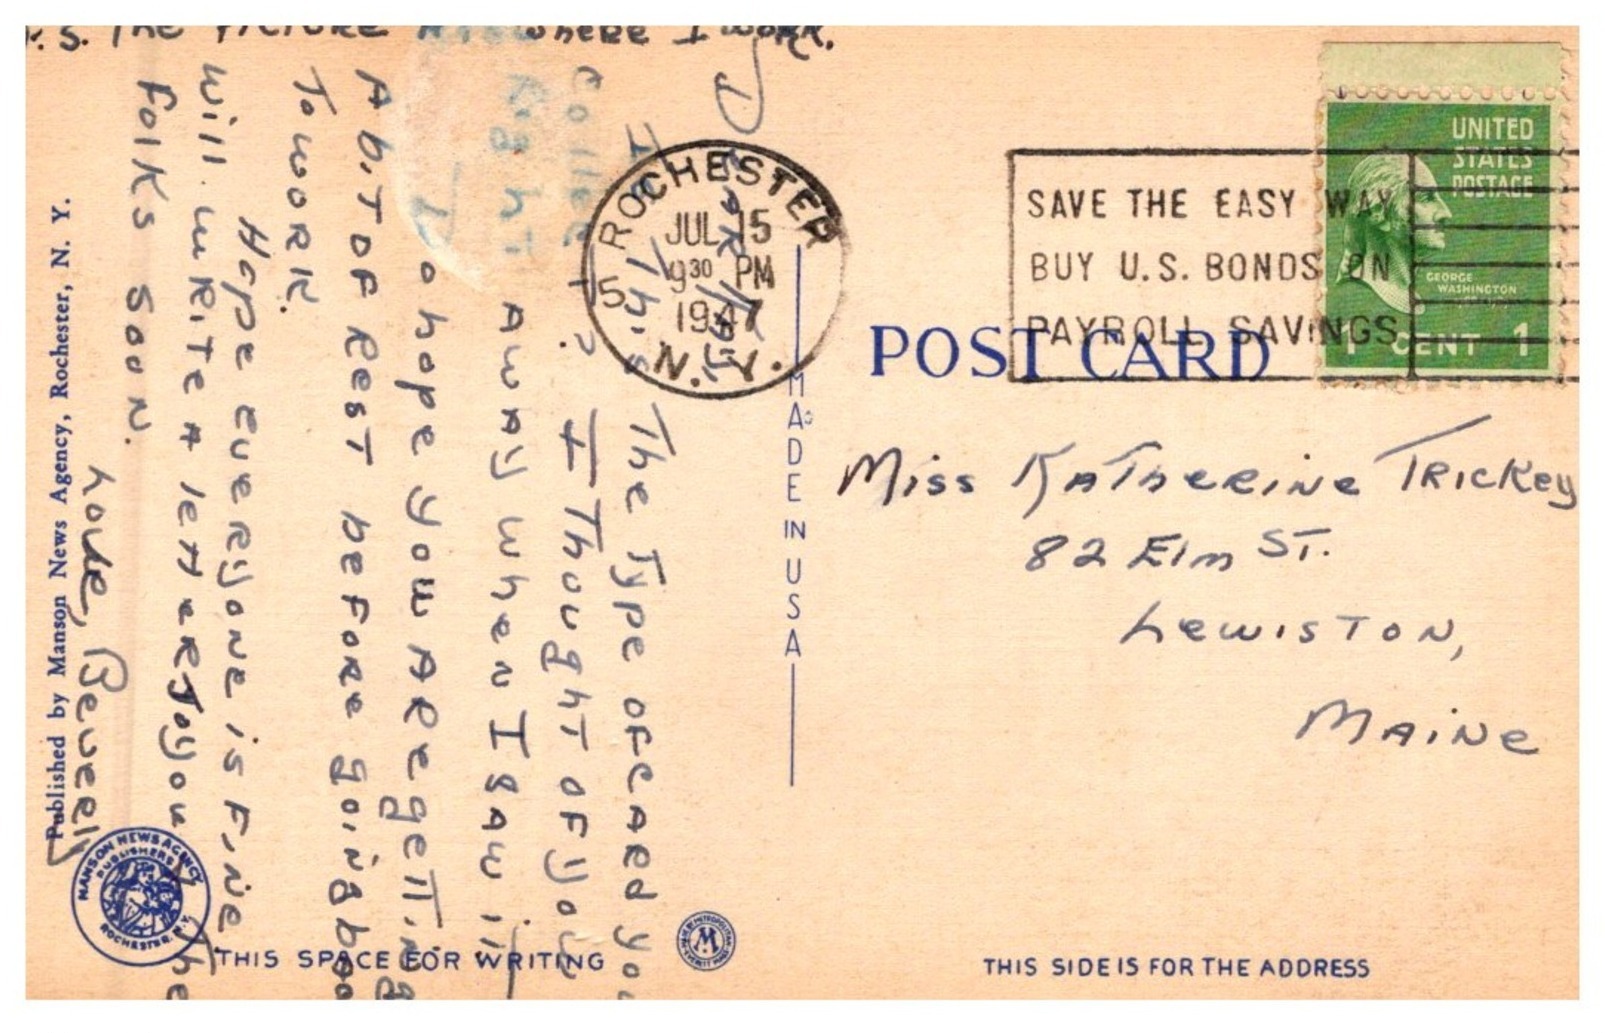 P.S. The Picture is where I work.
Dear Kay,
Is This The Type of card you
collect? I Thought of you
Right away when I saw it
I do hope you are getting
A bit of Rest before going back
To work.
Hope everyone is fine
will write a letter to you The
Folks soon.
Love, Beverly
Published by Manson News Agency, Rochester, N. Y.
MANSON NEWS AGENCY
PUBLISHERS
ROCHESTER, N.Y.
THIS SPACE FOR WRITING
MADE IN USA
ROCHESTER
JUL 15
9 30 PM
1947
5
N.Y.
POST CARD
SAVE THE EASY WAY
BUY U.S. BONDS ON
PAYROLL SAVINGS
UNITED
STATES
POSTAGE
GEORGE
WASHINGTON
1 CENT 1
Miss Katherine Trickey
82 Elm St.
Lewiston,
Maine
THIS SIDE IS FOR THE ADDRESS